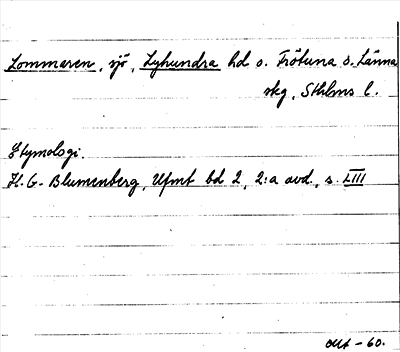 Lommaren, sjö, Lyhundra hd o. Frötuna o. Länna
skg, Sthlms l.
Etymologi.
H. G. Blumenberg, Ufmt bd 2, 2:a avd., s. LIII
-60.